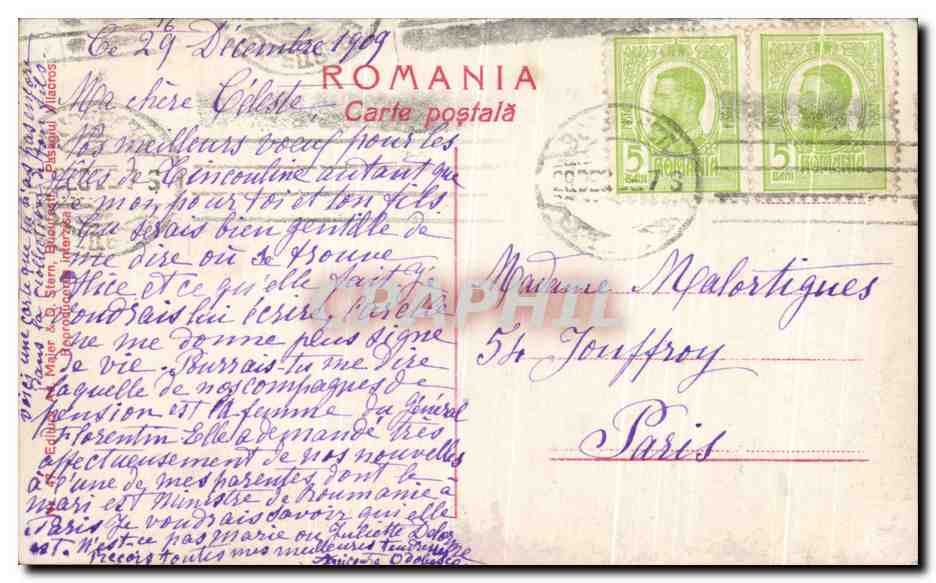 Ce 29 Décembre 1909
Ma chère Céleste,
Vos meilleurs voeux pour les
fêtes de autant que
je mon pour toi et ton fils
Tu serais bien gentille de
me dire où se trouve
Alice et ce qu'elle fait, j'y
voudrais lui écrire, car elle
ne me donne plus signe
de vie. Pourrais-tu me dire
laquelle de nos compagnes de
pension est la femme du Général
Florentin Elle a demandé très
affectueusement de nos nouvelles
à l'une de mes parentes dont le
mari est Ministre de Roumanie à
Paris Je voudrais savoir qui elle
est. N'est-ce pas Marie ou Juliette
Reçois toutes mes meilleures tendresses
Odobesco
voici une carte que tu n'as pas
dans ta collection
Editura Ad. Maier & D. Stern, Bucuresti. Pasagiul Vilacros.
Reproducerea interzisa
ROMANIA
Carte poștală
5 BANI ROMANIA
5 BANI ROMANIA
Madame Malortigues
54 Jouffroy
Paris
CPAPHIL